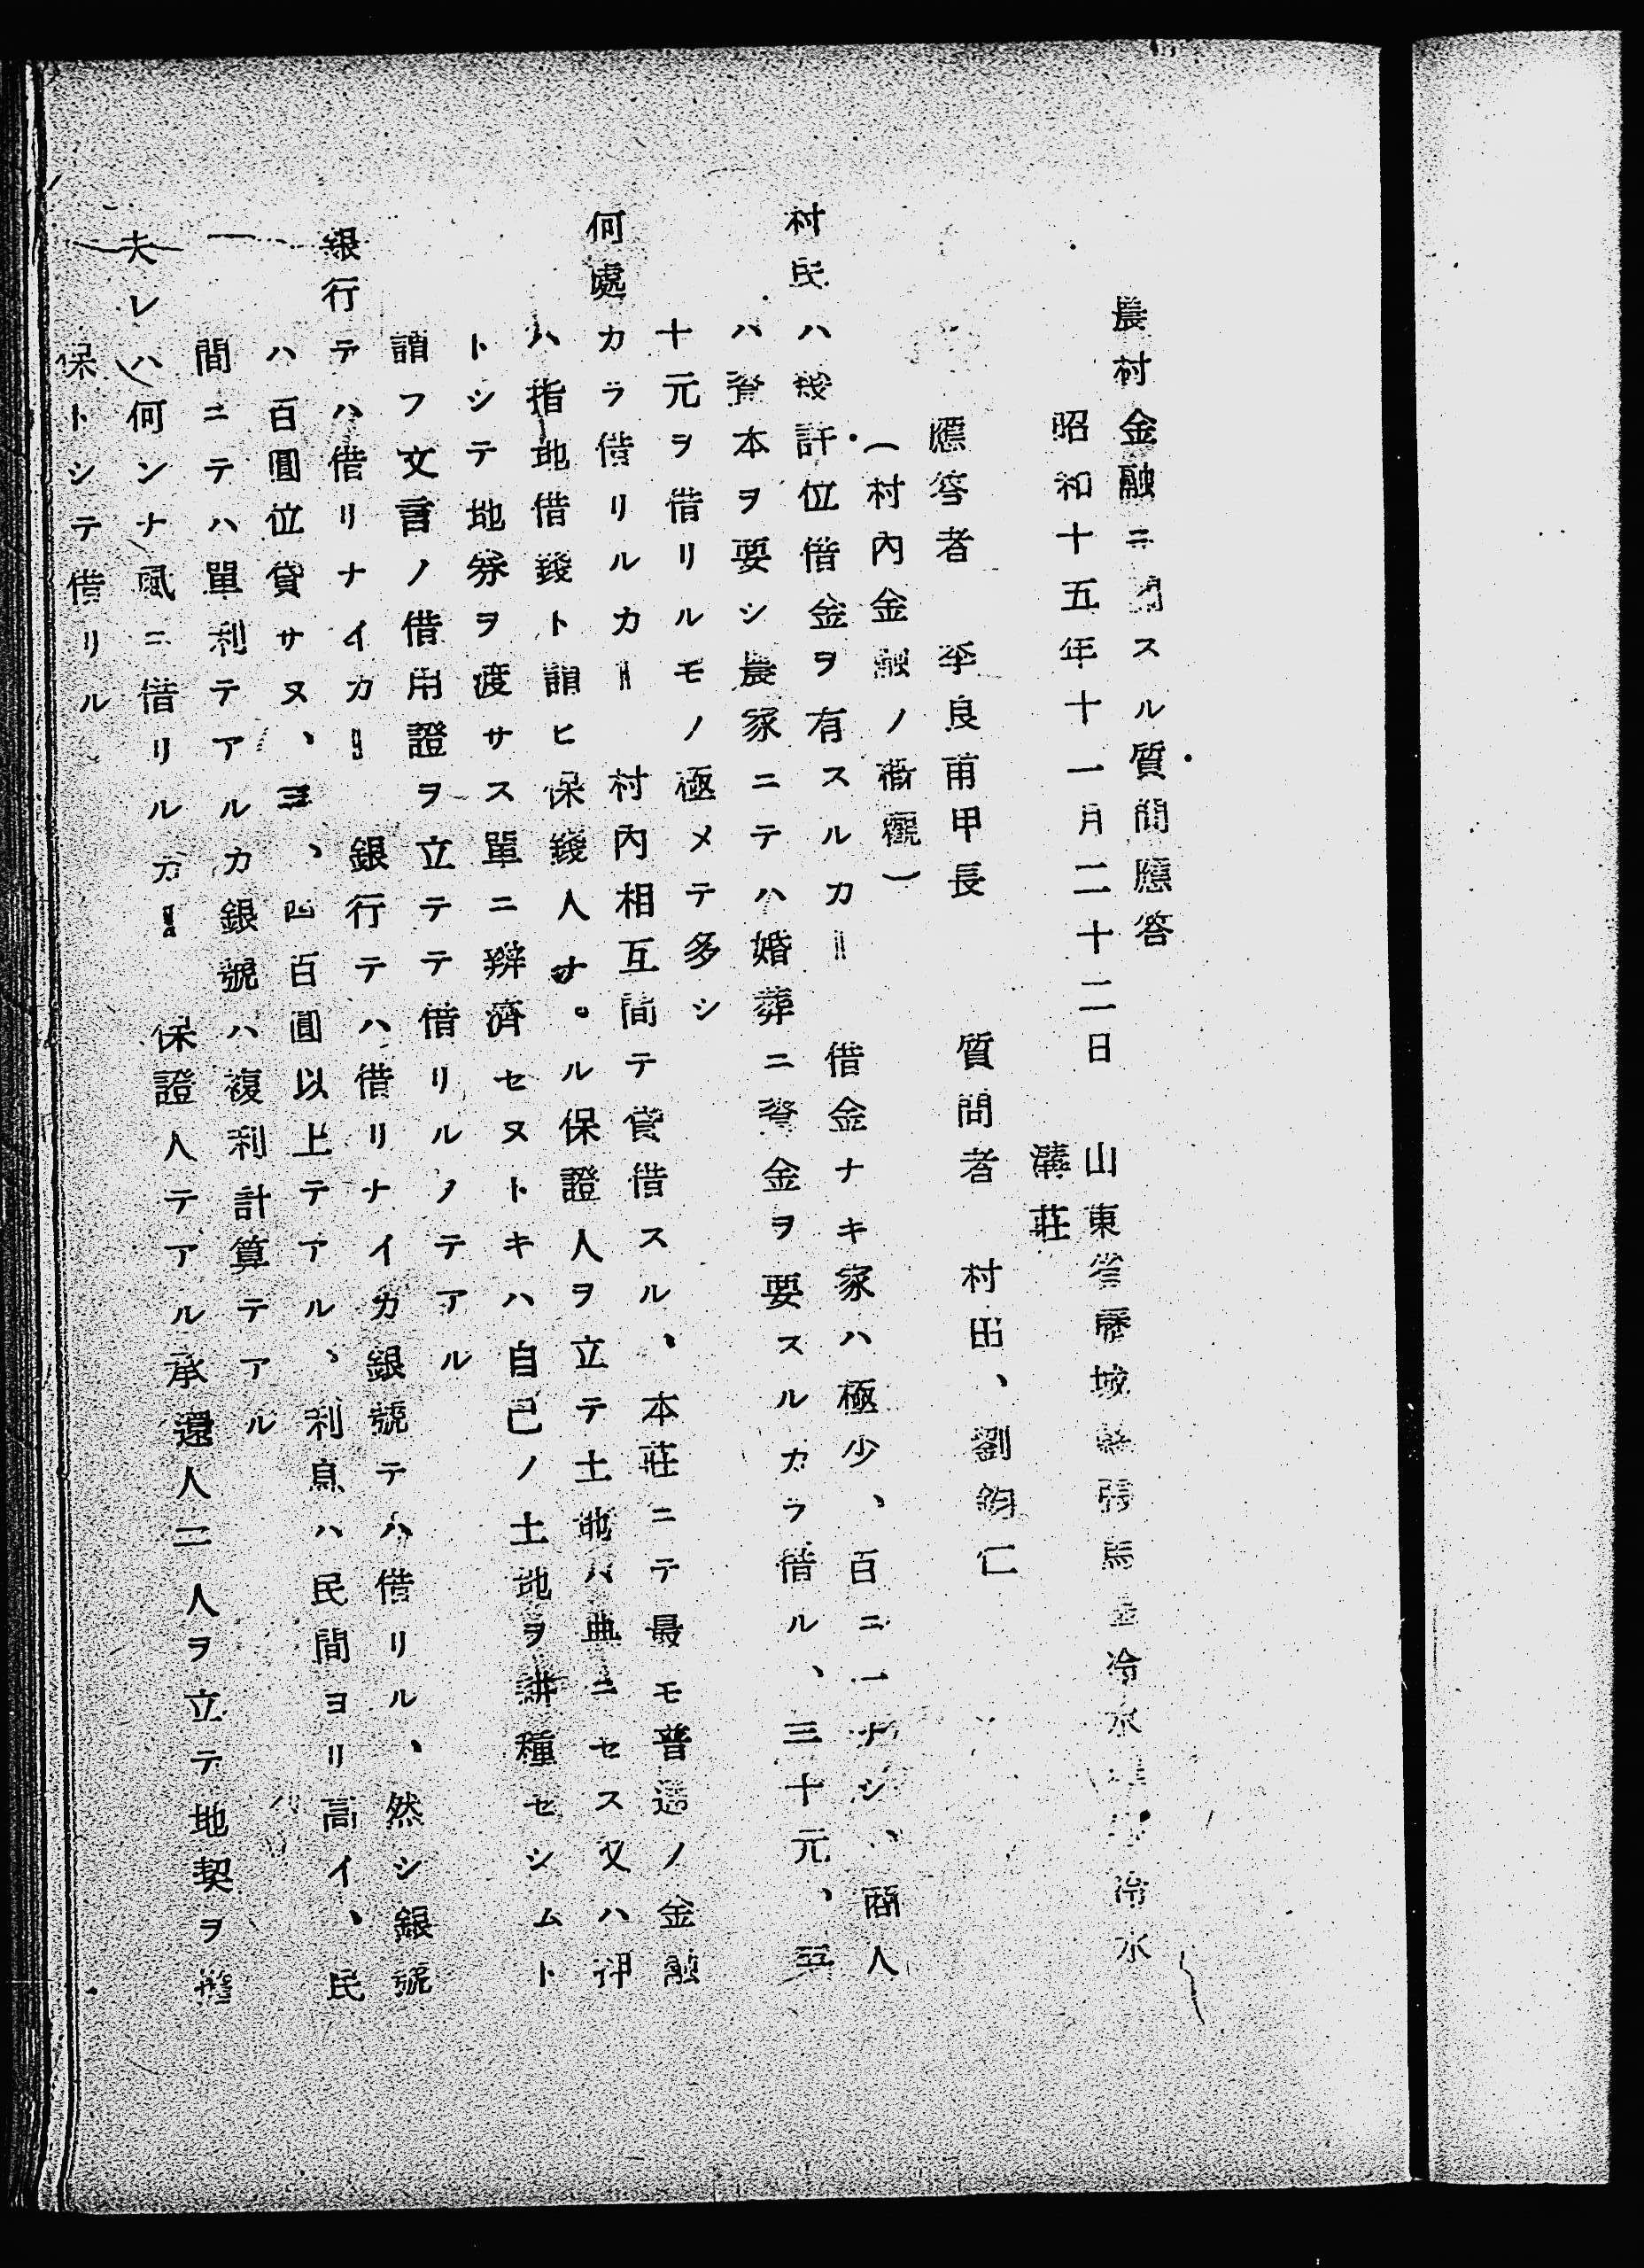 農村金融ニ関スル質問應答
昭和十五年十一月二十二日 山東省歷城縣張馬 冷水 冷水
溝莊
應答者 李良甫甲長 質問者 村田、劉鈞仁
(村内金融ノ概観)
村民ハ幾許位借金ヲ有スルカ= 借金ナキ家ハ極少、百ニ一ナシ、商人
ハ資本ヲ要シ農家ニテハ婚葬ニ資金ヲ要スルカラ借ル、三十元、五
十元ヲ借リルモノ極メテ多シ
何處カラ借リルカ= 村内相互間テ貸借スル、本莊ニテ最モ普遍ノ金融
ハ指地借錢ト謂ヒ保錢人ナル保證人ヲ立テ土地ハ典ニセス又ハ押
トシテ地券ヲ渡サス單ニ辨濟セヌトキハ自己ノ土地ヲ耕種セシムト
謂フ文言ノ借用證ヲ立テテ借リルノテアル
銀行テハ借リナイカ= 銀行テハ借リナイカ銀號テハ借リル、然シ銀號
ハ百圓位貸サヌ、三、四百圓以上テアル、利息ハ民間ヨリ高イ、民
間ニテハ單利テアルカ銀號ハ複利計算テアル
夫レハ何ンナ風ニ借リルカ= 保證人テアル承還人二人ヲ立テ地契ヲ擔
保トシテ借リル